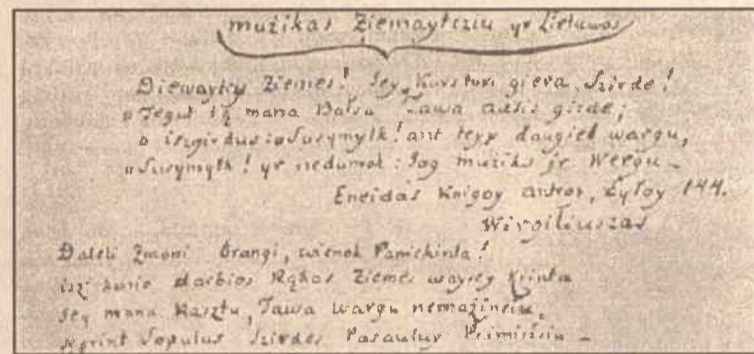 mužikas Ziemaytcziu yr Lietuwos
Diewayty Ziemes! Jey, Kurs turi giera, Szirdę!
Tegul tą mana Balsu Tawa ausis girde;
o iszgirdusi Susymylk! ant teyp daugiel wargu,
Susymylk! yr nedumok: Jog mužiks jr Wergu_
Eneidas Knigoy antroy, Eyloy 144.
Wirgiliuszas
Daleli Zmoni Brangi, wienok Pamiekinta!
isz kurio darbios Rąkas Ziemes waysey Krinta
Jey mana Rasztu, Tawa wargu nemažinsiu,
Sopulus Szirdes Pasauluy